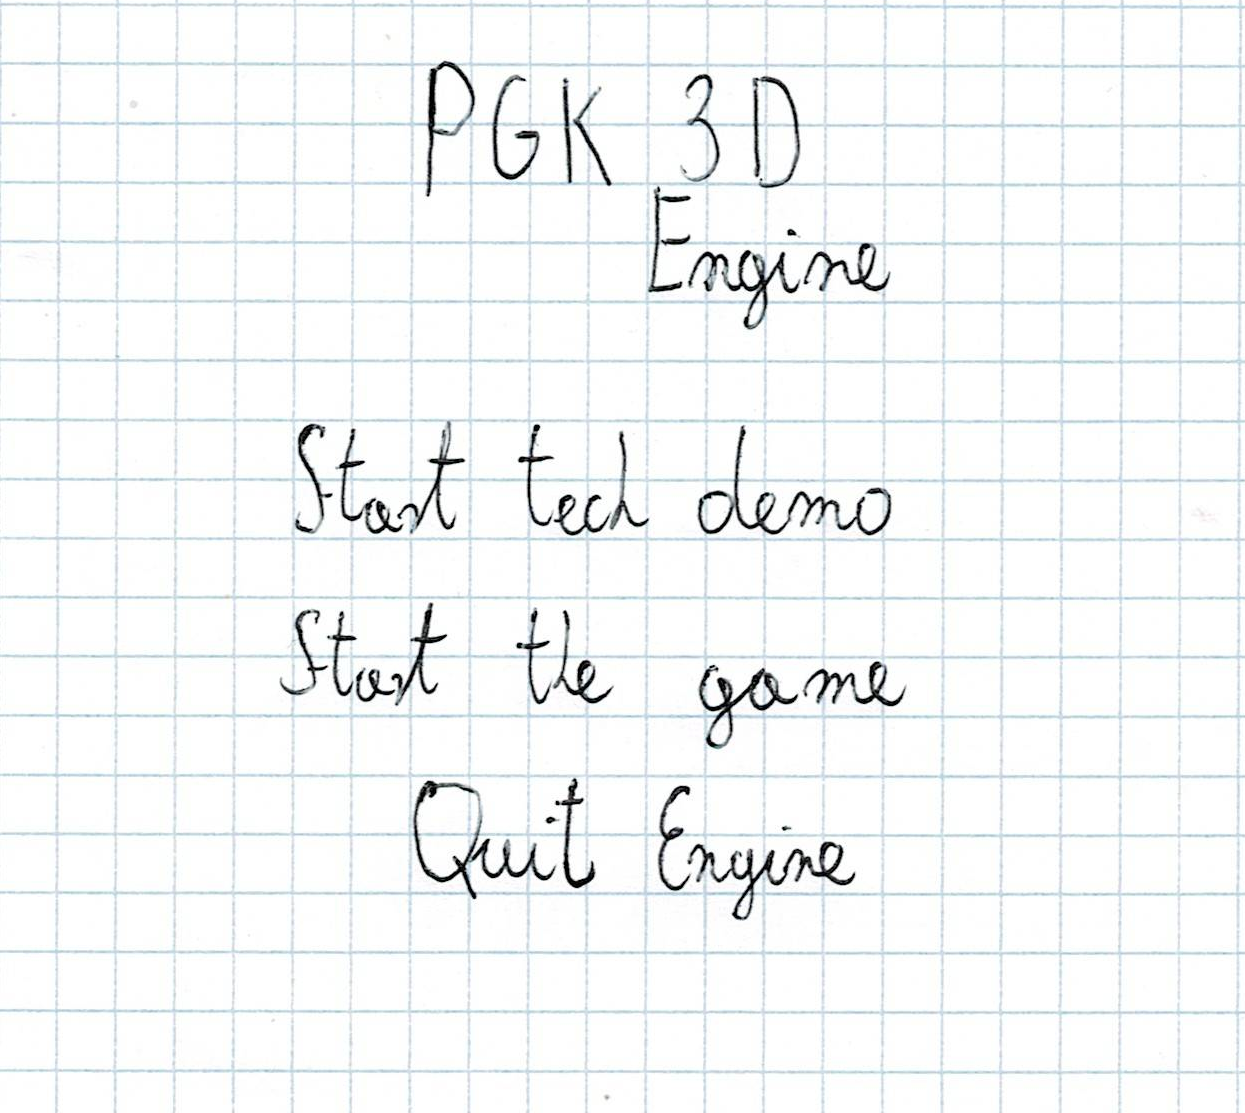 PGK 3D
Engine
Start tech demo
Start the game
Quit Engine